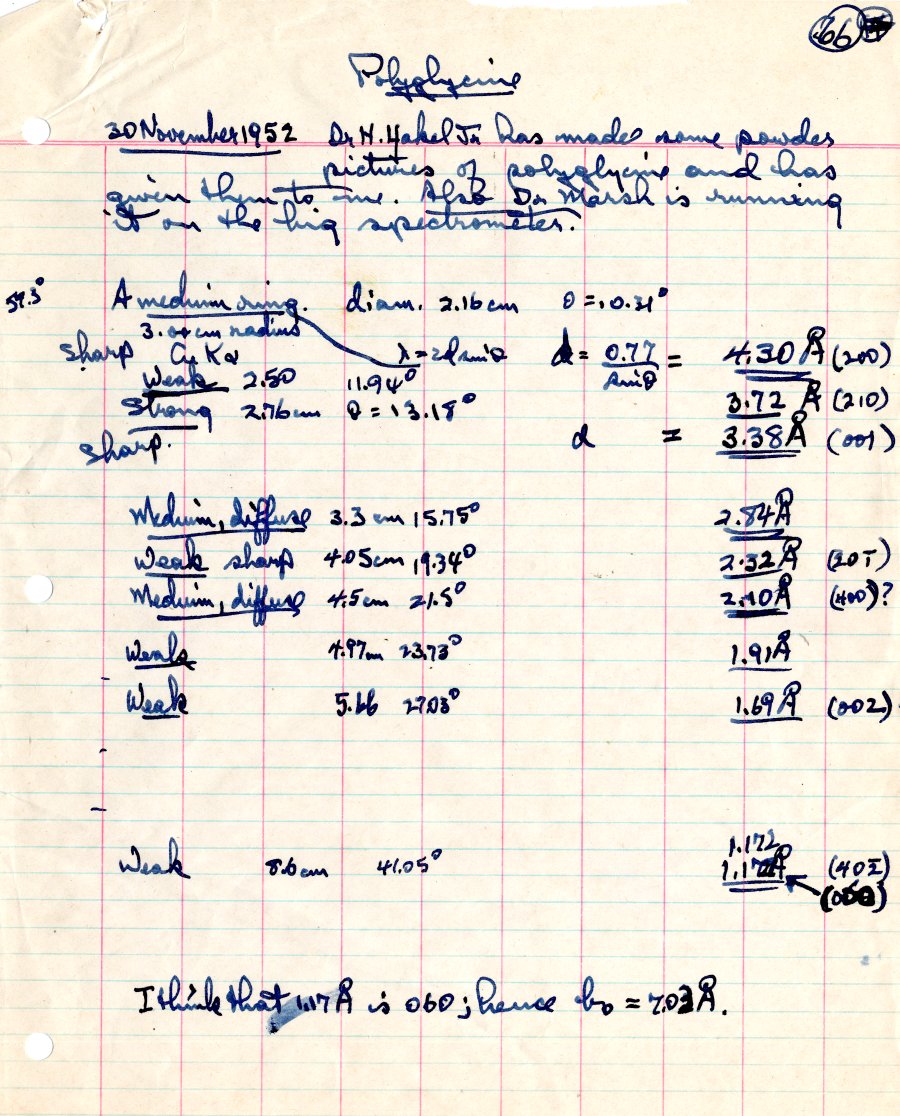 66
Polyglycine
30 November 1952 Dr H. Yakel Jr has made some powder
pictures of polyglycine and has
given them to me. Also Dr. Marsh is running
it on the big spectrometer.
57.3° A medium ring. diam. 2.16 cm θ = 10.31°
3.00 cm radius
sharp Cu Kα λ = 2d sinθ d = 0.77/sinθ = 4.30 Å (200)
Weak 2.50 11.94° 3.72 Å (210)
Strong 2.76 cm θ = 13.18° d = 3.38 Å (001)
sharp.
Medium, diffuse 3.3 cm 15.75° 2.84 Å
Weak sharp 4.05 cm 19.34° 2.32 Å (201̅)
Medium, diffuse 4.5 cm 21.5° 2.10 Å (400)?
Weak 4.97 cm 23.73° 1.91 Å
Weak 5.66 27.03° 1.69 Å (002)
1.172
Weak 8.6 cm 41.05° 1.17 Å (402̅)
I think that 1.17 Å is 060; hence b₀ = 7.03 Å.